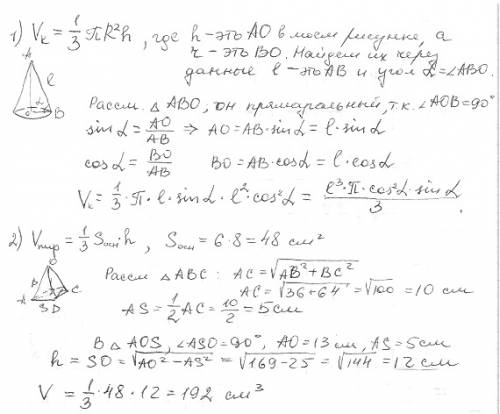 1) Vк = 1/3 πR²h, где h - это AO в моем рисунке, а
r - это BO. Найдем их через
данные l - это AB и угол α = ∠ABO.
A
l
α
O
B
Рассм. △ ABO, он прямоугальный, т.к. ∠AOB = 90°
sin α = AO/AB ⇒ AO = AB · sin α = l · sin α
cos α = BO/AB BO = AB · cos α = l · cos α
Vк = 1/3 · π · l · sin α · l² · cos² α = l³ · π · cos² α · sin α / 3.
2) Vпир = 1/3 Sосн · h, Sосн = 6 · 8 = 48 см²
O
B
C
A
S
D
Рассм △ ABC: AC = √AB² + BC²
AC = √36 + 64 = √100 = 10 см
AS = 1/2 AC = 10/2 = 5 см
В △ AOS, ∠ASO = 90°, AO = 13 см, AS = 5 см
h = SO = √AO² - AS² = √169 - 25 = √144 = 12 см
V = 1/3 · 48 · 12 = 192 см³